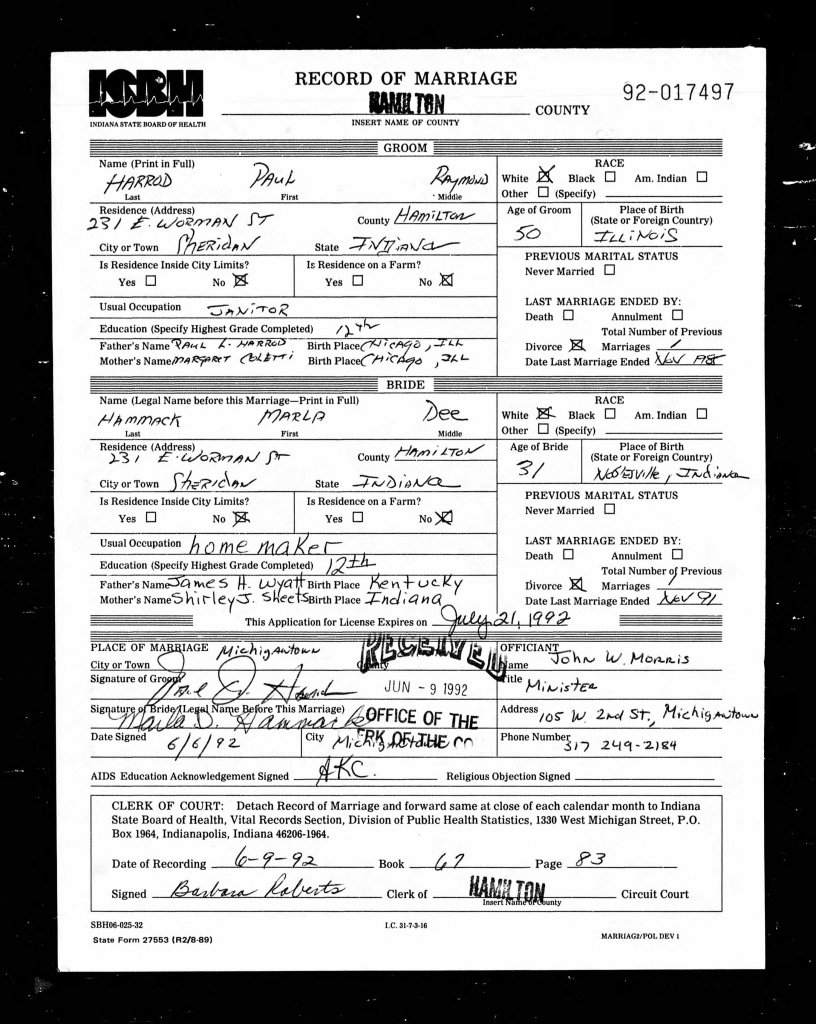 ISBH
INDIANA STATE BOARD OF HEALTH
RECORD OF MARRIAGE
HAMILTON COUNTY
INSERT NAME OF COUNTY
92-017497
GROOM
Name (Print in Full)
HARROD PAUL RAYMOND
Last First Middle
RACE
White ☒ Black ☐ Am. Indian ☐
Other ☐ (Specify)
Residence (Address)
231 E. WORMAN ST County HAMILTON
City or Town SHERIDAN State INDIANA
Age of Groom
50
Place of Birth
(State or Foreign Country)
ILLINOIS
Is Residence Inside City Limits?
Yes ☐ No ☒
Is Residence on a Farm?
Yes ☐ No ☒
PREVIOUS MARITAL STATUS
Never Married ☐
Usual Occupation JANITOR
Education (Specify Highest Grade Completed) 12th
Father's Name PAUL L. HARROD Birth Place CHICAGO, ILL
Mother's Name MARGARET COLETTI Birth Place CHICAGO, ILL
LAST MARRIAGE ENDED BY:
Death ☐ Annulment ☐
Total Number of Previous
Divorce ☒ Marriages 1
Date Last Marriage Ended NOV
BRIDE
Name (Legal Name before this Marriage—Print in Full)
HAMMACK MARLA Dee
Last First Middle
RACE
White ☒ Black ☐ Am. Indian ☐
Other ☐ (Specify)
Residence (Address)
231 E. WORMAN ST County HAMILTON
City or Town SHERIDAN State INDIANA
Age of Bride
31
Place of Birth
(State or Foreign Country)
Noblesville, Indiana
Is Residence Inside City Limits?
Yes ☐ No ☒
Is Residence on a Farm?
Yes ☐ No ☒
PREVIOUS MARITAL STATUS
Never Married ☐
Usual Occupation home maker
Education (Specify Highest Grade Completed) 12th
Father's Name James H. Wyatt Birth Place Kentucky
Mother's Name Shirley J. Sheets Birth Place Indiana
LAST MARRIAGE ENDED BY:
Death ☐ Annulment ☐
Total Number of Previous
Divorce ☒ Marriages 1
Date Last Marriage Ended NOV 91
This Application for License Expires on July 21, 1992
PLACE OF MARRIAGE Michigantown
City or Town County
RECEIVED
JUN - 9 1992
OFFICE OF THE
OFFICIANT
Name John W. Morris
Title Minister
Signature of Groom
Signature of Bride (Legal Name Before This Marriage)
Marla D. Hammack
Address 105 W. 2nd St., Michigantown
Date Signed 6/6/92 City Michigantown
Phone Number 317 249-2184
AIDS Education Acknowledgement Signed AKC. Religious Objection Signed
CLERK OF COURT: Detach Record of Marriage and forward same at close of each calendar month to Indiana
State Board of Health, Vital Records Section, Division of Public Health Statistics, 1330 West Michigan Street, P.O.
Box 1964, Indianapolis, Indiana 46206-1964.
Date of Recording 6-9-92 Book 67 Page 83
Signed Barbara Roberts Clerk of HAMILTON Circuit Court
Insert Name of County
SBH06-025-32
State Form 27553 (R2/8-89)
I.C. 31-7-3-16
MARRIAG2/POL DEV 1